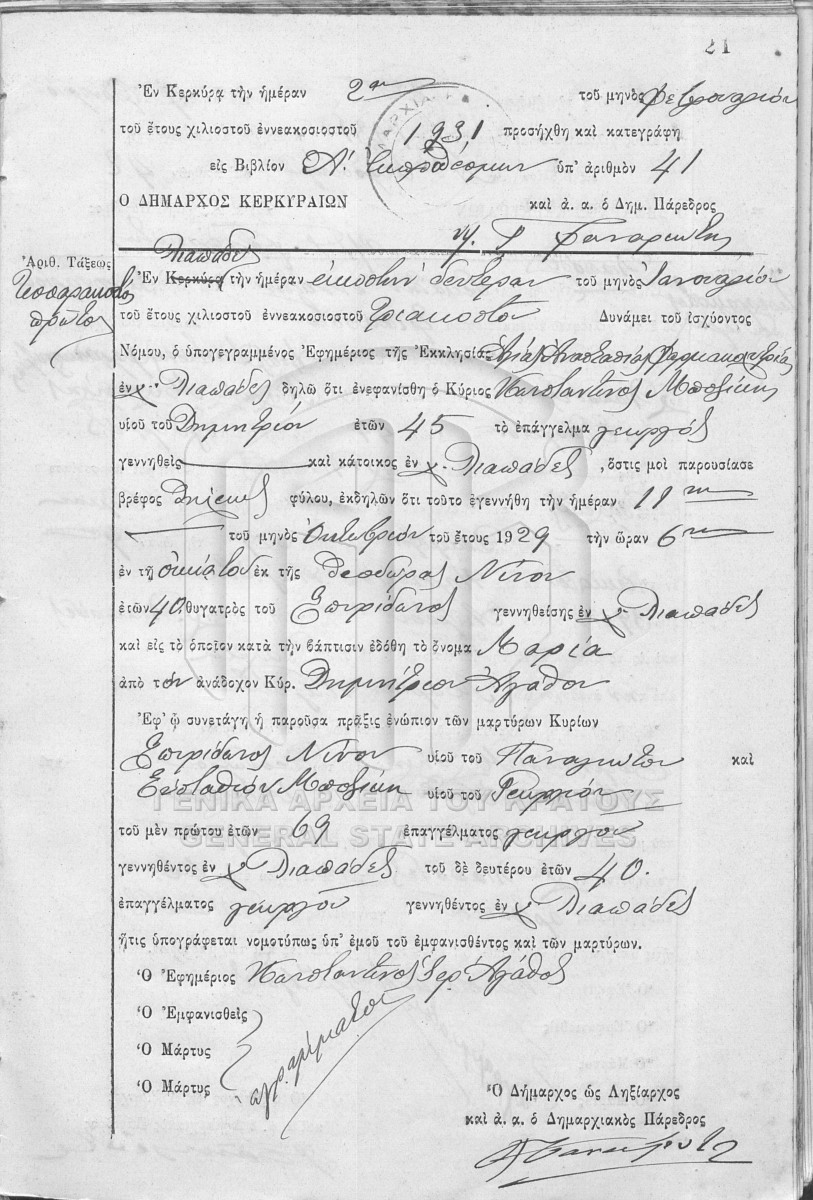 21
Ἐν Κερκύρᾳ τὴν ἡμέραν 2αν τοῦ μηνὸς Φεβρουαρίου
τοῦ ἔτους χιλιοστοῦ ἐννεακοσιοστοῦ 1931 προσήχθη καὶ κατεγράφη
εἰς Βιβλίον Α'. Ἐκπροθέσμων ὑπ' ἀριθμὸν 41
Ο ΔΗΜΑΡΧΟΣ ΚΕΡΚΥΡΑΙΩΝ καὶ ἀ. α. ὁ Δημ. Πάρεδρος
Λιαπάδες
Ἀριθ. Τάξεως
Τεσσαρακοστὸς
πρῶτος
Ἐν Κερκύρᾳ τὴν ἡμέραν εἰκοστὴν δευτέραν τοῦ μηνὸς Ἰανουαρίου
τοῦ ἔτους χιλιοστοῦ ἐννεακοσιοστοῦ τριακοστοῦ Δυνάμει τοῦ ἰσχύοντος
Νόμου, ὁ ὑπογεγραμμένος Ἐφημέριος τῆς Ἐκκλησίας Ἁγίας Ἀναστασίας Φαρμακολυτρίας
ἐν χ. Λιαπάδες δηλῶ ὅτι ἐνεφανίσθη ὁ Κύριος Κωνσταντῖνος Μποζίκης
υἱοῦ τοῦ Δημητρίου ἐτῶν 45 τὸ ἐπάγγελμα γεωργός
γεννηθεὶς καὶ κάτοικος ἐν χ. Λιαπάδες, ὅστις μοὶ παρουσίασε
βρέφος θήλεως φύλου, ἐκδηλῶν ὅτι τοῦτο ἐγεννήθη τὴν ἡμέραν 11ην
τοῦ μηνὸς Ὀκτωβρίου τοῦ ἔτους 1929 τὴν ὥραν 6ην
ἐν τῇ οἰκίᾳ του ἐκ τῆς Θεοδώρας Νίνου
ἐτῶν 40. θυγατρὸς τοῦ Σπυρίδωνος γεννηθείσης ἐν χ. Λιαπάδες
καὶ εἰς τὸ ὁποῖον κατὰ τὴν βάπτισιν ἐδόθη τὸ ὄνομα Μαρία
ἀπὸ τὸν ἀνάδοχον Κύρ. Δημήτριον Ἀγάθου
Ἐφ' ᾧ συνετάγη ἡ παροῦσα πρᾶξις ἐνώπιον τῶν μαρτύρων Κυρίων
Σπυρίδωνος Νίνου υἱοῦ τοῦ Παναγιώτου καὶ
Εὐσταθίου Μποζίκη υἱοῦ τοῦ Γεωργίου
ΓΕΝΙΚΑ ΑΡΧΕΙΑ ΤΟΥ ΚΡΑΤΟΥΣ
τοῦ μὲν πρώτου ἐτῶν 69 ἐπαγγέλματος γεωργοῦ
GENERAL STATE ARCHIVES
γεννηθέντος ἐν χ. Λιαπάδες τοῦ δὲ δευτέρου ἐτῶν 40.
ἐπαγγέλματος γεωργοῦ γεννηθέντος ἐν χ. Λιαπάδες
ἥτις ὑπογράφεται νομοτύπως ὑπ' ἐμοῦ τοῦ ἐμφανισθέντος καὶ τῶν μαρτύρων.
Ὁ Ἐφημέριος Κωνσταντῖνος Ἱερ. Ἀγάθος
Ὁ Ἐμφανισθεὶς
Ὁ Μάρτυς
Ὁ Μάρτυς
ἀγράμματοι
Ὁ Δήμαρχος ὡς Ληξίαρχος
καὶ ἀ. α. ὁ Δημαρχιακὸς Πάρεδρος